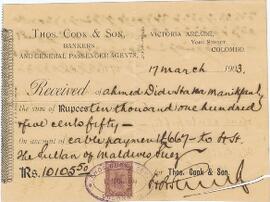 THOS. COOK & SON,
BANKERS
AND GENERAL PASSENGER AGENTS.
VICTORIA ARCADE,
YORK STREET,
COLOMBO.
17 March 1903.
Received of Ahmed Didi
the sum of Rupees ten thousand one hundred
& five cents fifty —
on account of cable payment £667 – to H.H.
The Sultan of Maldives Suez
Rs. 10105.50
For Thos. Cook & Son.